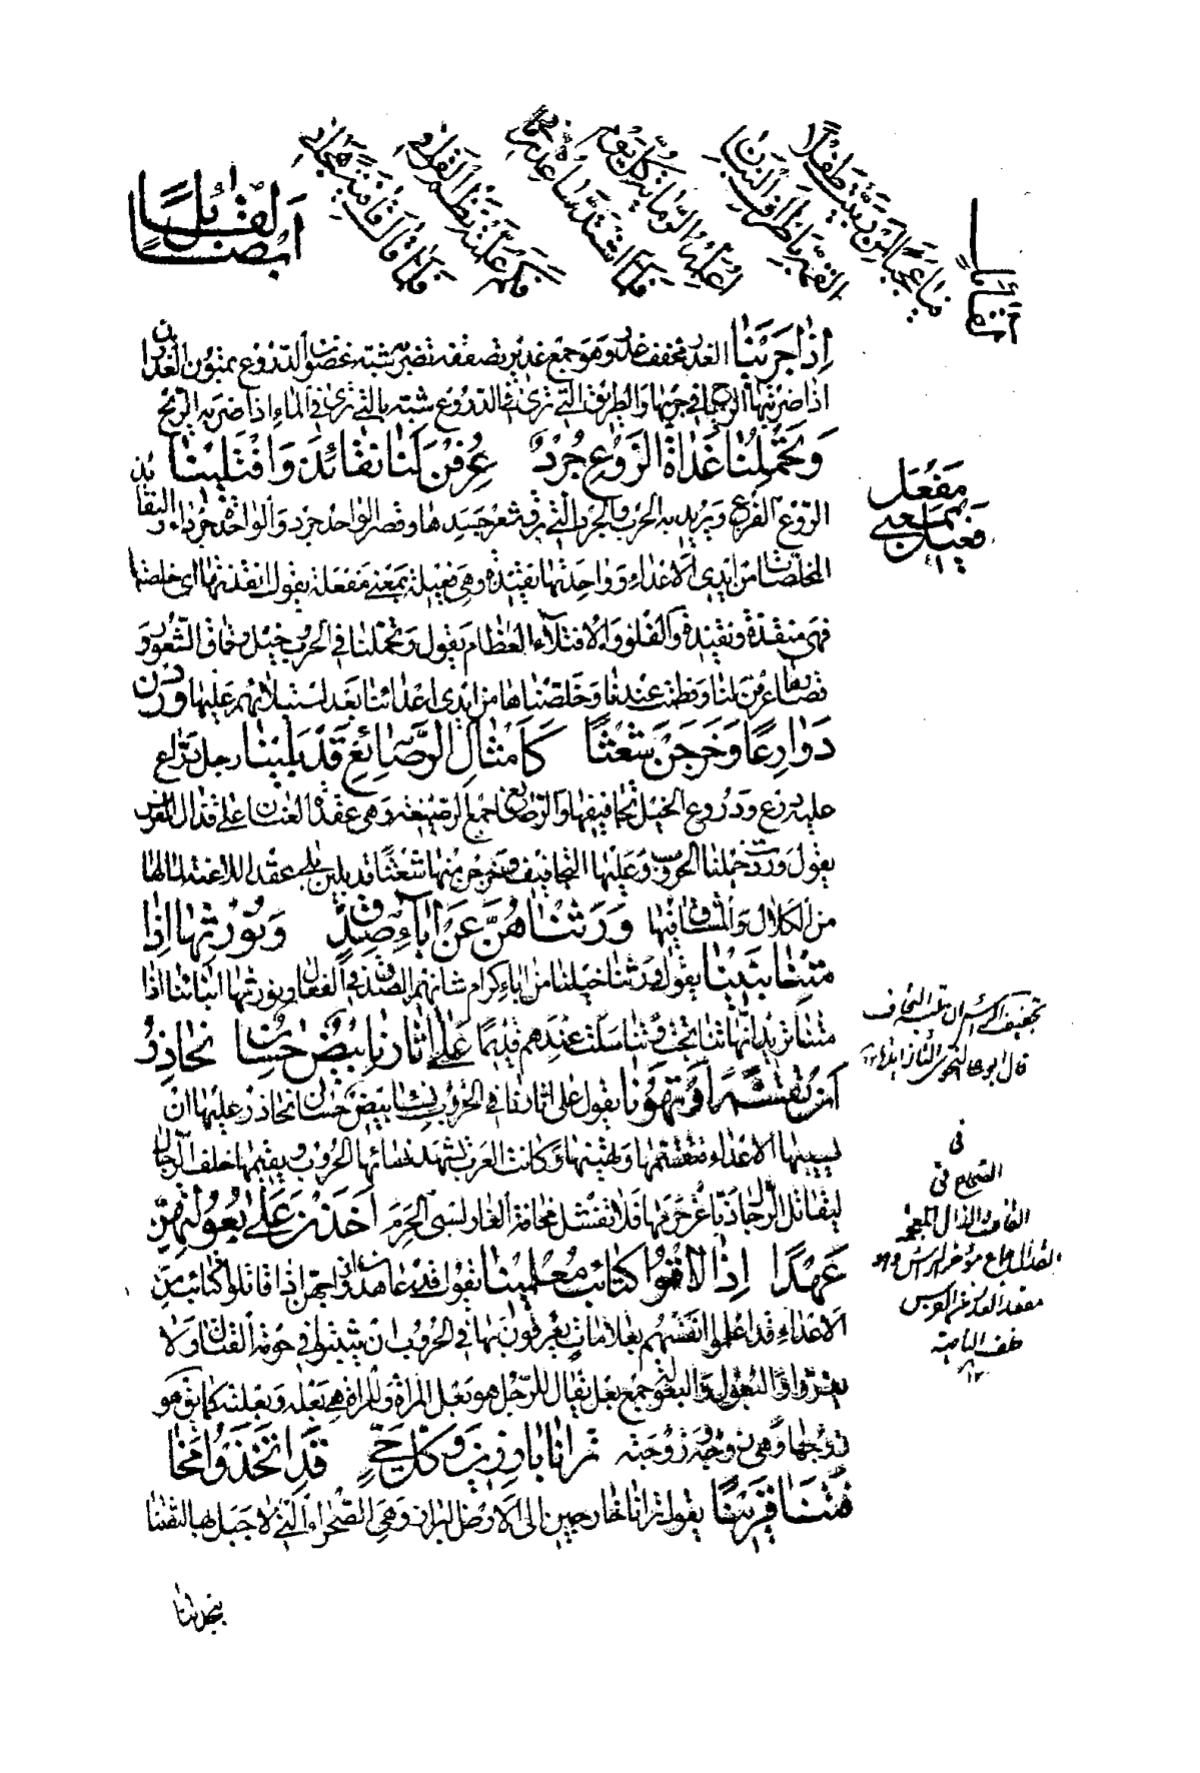 أيضا لقائل
فيا عجبا لمن ربيت طفلا
القمه بأطراف البنان
أعلمه الرماية كل يوم
فلما اشتد ساعده رماني
وكم علمته نظم القوافي
فلما قال قافية هجاني
إذا جرينا الغدر مخفف غدر وهو جمع غدير تصفقه تضربه شبه غضون الدروع بمتون الغدران
اذا ضربتها الرياح في جريها والطرائق التي ترى في الدروع شبه بالتي ترى في الماء اذا ضربه الريح
وتحملنا غداة الروع جرد عرفن لنا نقائذ وافتلينا
الروع الفزع ويريد به الحرب والجرد التي رق شعر جسدها وقصر الواحد اجرد والواحدة جرداء والنقائذ
المخلصات من ايدي الاعداء وواحدتها نقيذة وهي فعيلة بمعنى مفعلة يقول انقذتها اي خلصتها
فهي منقذة ونقيذة والفلو والافتلاء الفطام يقول وتحملنا في الحرب خيل رقاق الشعور و
قصارها عرفن لنا وفطمت عندنا وخلصناها من ايدي اعدائنا بعد استيلائهم عليها وردن
دوارعا وخرجن شعثا كأمثال الرصائع قد بلينا رجل دارع
عليه درع ودروع الخيل تجافيفها والرصائع جمع الرصيعة وهي عقدة العنان على قذال الفرس
يقول وردت خيلنا الحروب وعليها التجافيف وخرجن منها شعثا قد بلين بلى عقد الاعنة لما نالها
من الكلال والمشاق فيها ورثناهن عن آباء صدق ونورثها إذا
متنا بنينا يقول ورثنا خيلنا من اباء كرام شانهم الصدق في الفعال ونورثها ابنائنا اذا
متنا تريد انها تناتجت وتناسلت عندهم قديما على آثارنا بيض حسان نحاذر
أن تقسم أو تهونا يقول على اثارنا في الحروب نساء بيض حسان نحاذر عليها ان
يسبيها الاعداء فتقسمها وتهينها وكانت العرب تشهد نسائها الحروب ويقيمها خلف الرجال
ليقاتل الرجال ذبا عن حرمها فلا تفشل مخافة العار لسبي الحرم أخذن على بعولتهن
عهدا إذا لاقوا كتائب معلمينا يقول قد عاهدن ازواجهن اذا قاتلوا كتائب من
الاعداء قد اعلموا انفسهم بعلامات يعرفون بها في الحروب ان يثبتوا في حومة القتال ولا
يفروا والبعول والبعولة جمع بعل يقال للرجل هو بعل المرأة وللمرأة هي بعله وبعلته كما يق هو
زوجها وهي زوجه وزوجته ترانا بارزين وكل حي قد اتخذوا مخا
فتنا قرينا يقول ترانا خارجين الى الارض البراز وهي الصحراء التي لا جبل بها لثقتنا
بنجدتنا
مفعل
بمعنى
فعيل
١٢
في
الصحاح في
القاف والذال المعجمة
القذال جماع مؤخر الرأس وهو
معقد العذار من الفرس
خلف الناصية
١٢